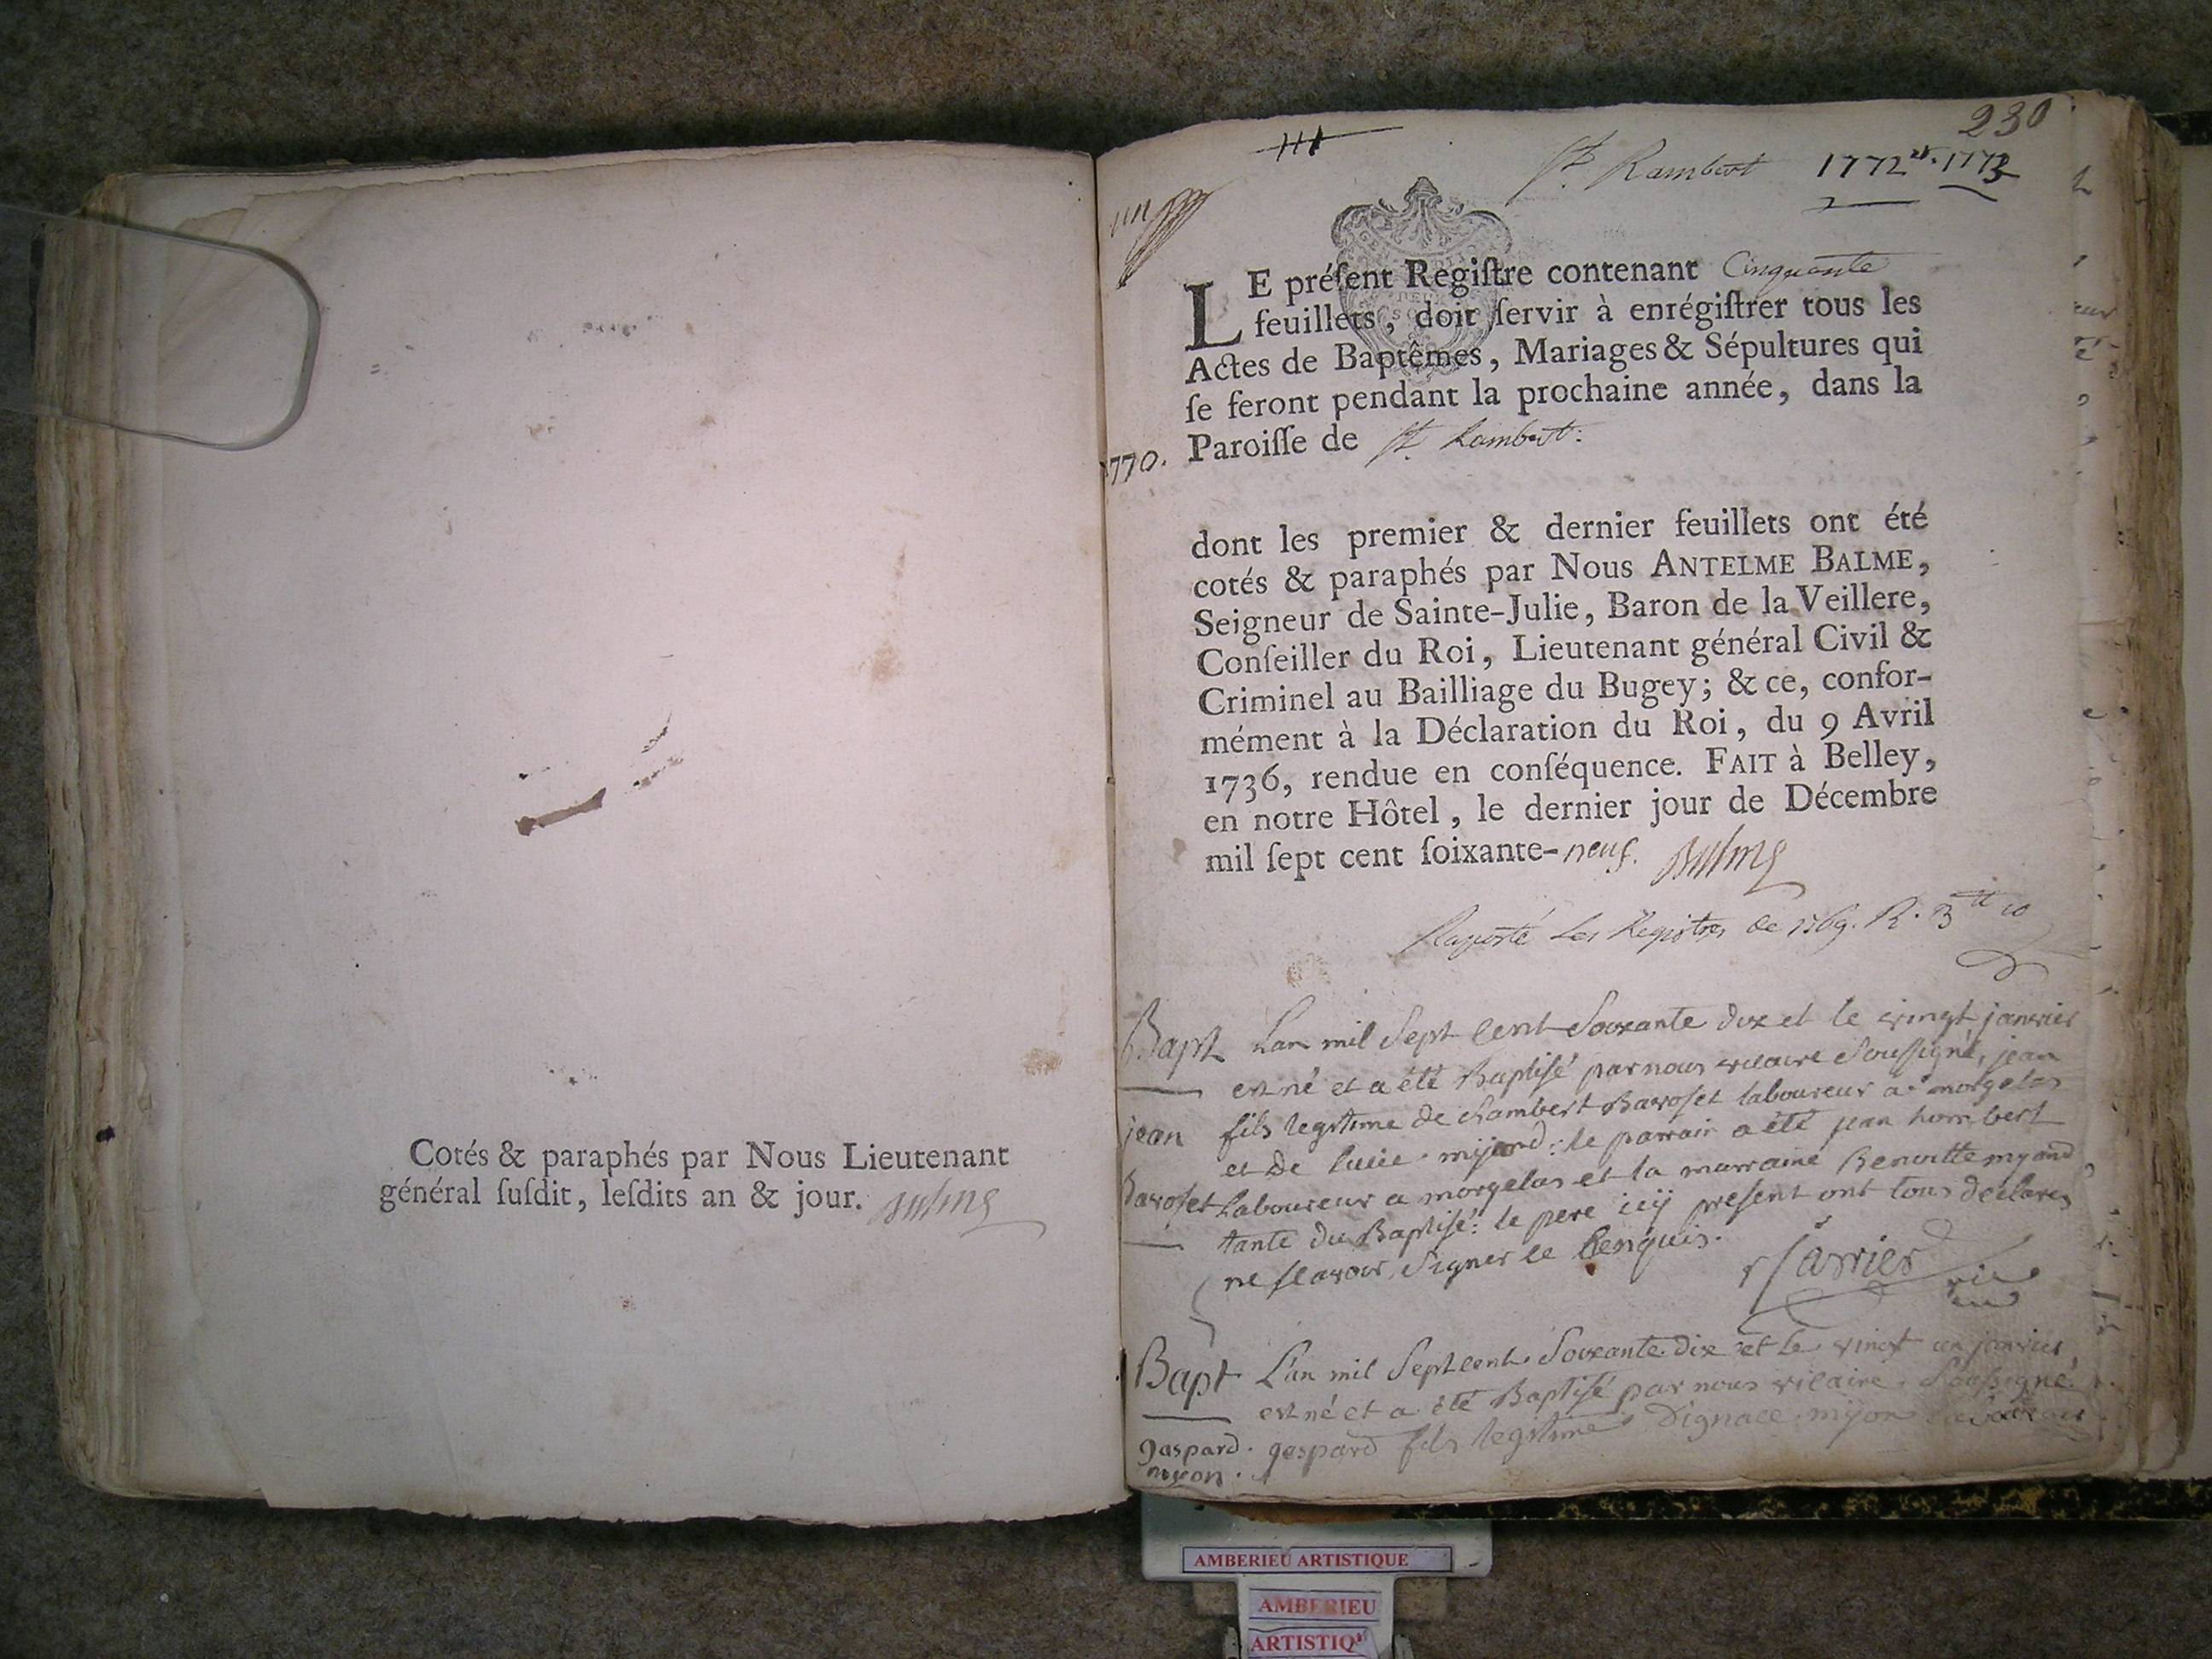 Cotés & paraphés par Nous Lieutenant
général ſuſdit, leſdits an & jour. Balme
230
St. Rambert 1772 et 1773
un
LE préſent Regiſtre contenant Cinquante
feuillets, doit ſervir à enrégiſtrer tous les
Actes de Baptêmes, Mariages & Sépultures qui
ſe feront pendant la prochaine année, dans la
Paroiſſe de St. Rambert.
1770.
dont les premier & dernier feuillets ont été
cotés & paraphés par Nous ANTELME BALME,
Seigneur de Sainte-Julie, Baron de la Veillere,
Conſeiller du Roi, Lieutenant général Civil &
Criminel au Bailliage du Bugey; & ce, confor-
mément à la Déclaration du Roi, du 9 Avril
1736, rendue en conſéquence. FAIT à Belley,
en notre Hôtel, le dernier jour de Décembre
mil ſept cent ſoixante-neuf. Balme
Raporté les Registres de 1769. R. 3tt 10
Bapt
jean
Bavoset
Lan mil Sept Cent Soixante dix et le vingt janvier
est né et a été Baptisé par nous vicaire Soussigné, jean
fils legitime de Rambert Bavoset laboureur a morgelas
et De lucie mijand: le parrain a été jean humbert
Laboureur a morgelas et la marraine Benoitte myand
tante du Baptisé: le pere icy present ont tous declarés
ne sçavoir Signer de Ce enquis.
Sarrier vic
Bapt
gaspard
myon.
L'an mil Sept cent Soixante Dix et Le vingt un janvier
est né et a été Baptisé par nous vicaire Soussigné
gaspard fils legitime D'ignace mijon
AMBERIEU ARTISTIQUE
AMBERIEU
ARTISTIQ